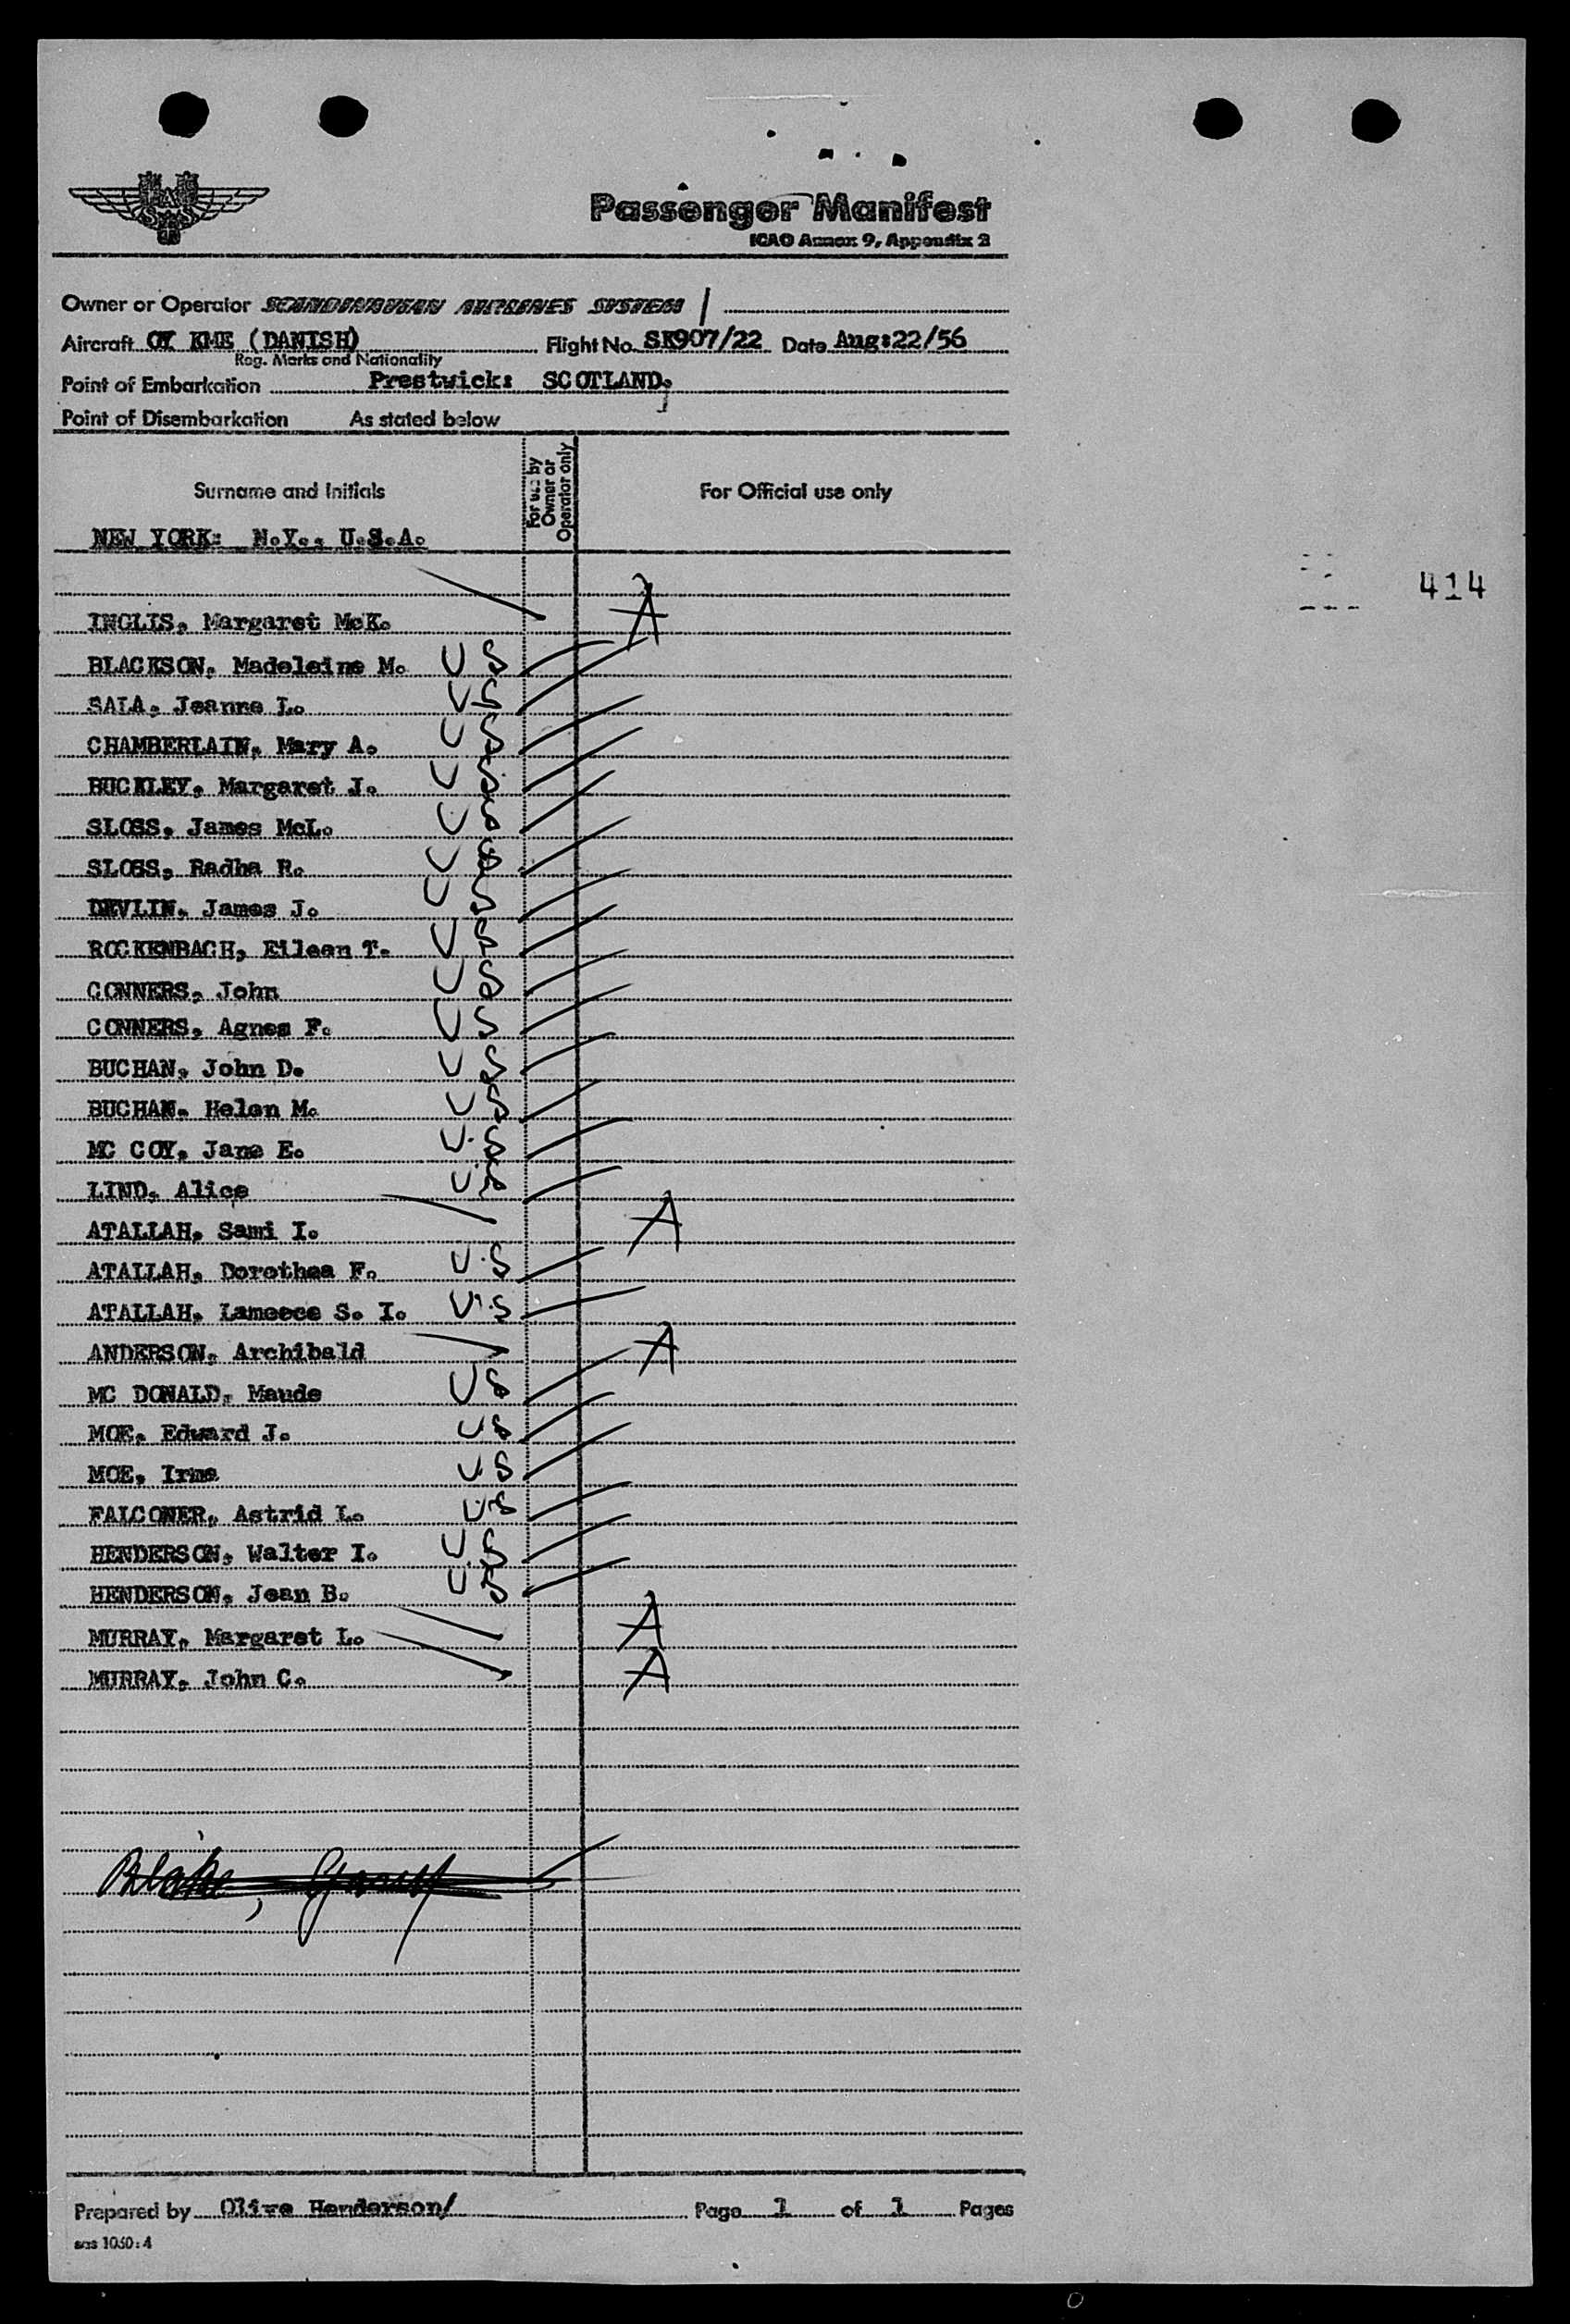 SAS
Passenger Manifest
ICAO Annex 9, Appendix 2
Owner or Operator SCANDINAVIAN AIRLINES SYSTEM
Aircraft OY KME (DANISH) Flight No. SK907/22 Date Aug:22/56
Reg. Marks and Nationality
Point of Embarkation Prestwick: SCOTLAND.
Point of Disembarkation As stated below
Surname and Initials For use by Owner or Operator only For Official use only
NEW YORK: N.Y., U.S.A.
414
INGLIS, Margaret McK. A
BLACKSON, Madeleine M. U S
SALA, Jeanne L. U S
CHAMBERLAIN, Mary A. U S
BUCKLEY, Margaret J. U S
SLOSS, James McL. U S
SLOSS, Radha R. U S
DEVLIN, James J. U S
ROCKENBACH, Eileen T. U S
CONNERS, John U S
CONNERS, Agnes F. U S
BUCHAN, John D. U S
BUCHAN, Helen M. U S
MC COY, Jane E. U.S
LIND, Alice U.S
ATALLAH, Sami I. A
ATALLAH, Dorothea F. U.S
ATALLAH, Lameece S. I. U.S
ANDERSON, Archibald A
MC DONALD, Maude U S
MOE, Edward J. U S
MOE, Irma U.S
FALCONER, Astrid L. U.S
HENDERSON, Walter I. U.S
HENDERSON, Jean B. U.S
MURRAY, Margaret L. A
MURRAY, John C. A
Prepared by Olive Henderson/ Page 1 of 1 Pages
sas 1030:4